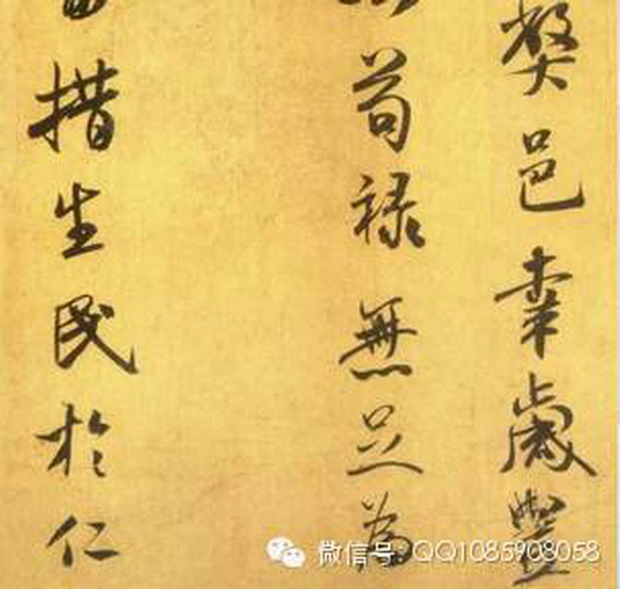 弊邑幸歲豐
苟祿無足為
措生民於仁
微信号: QQ1085908058